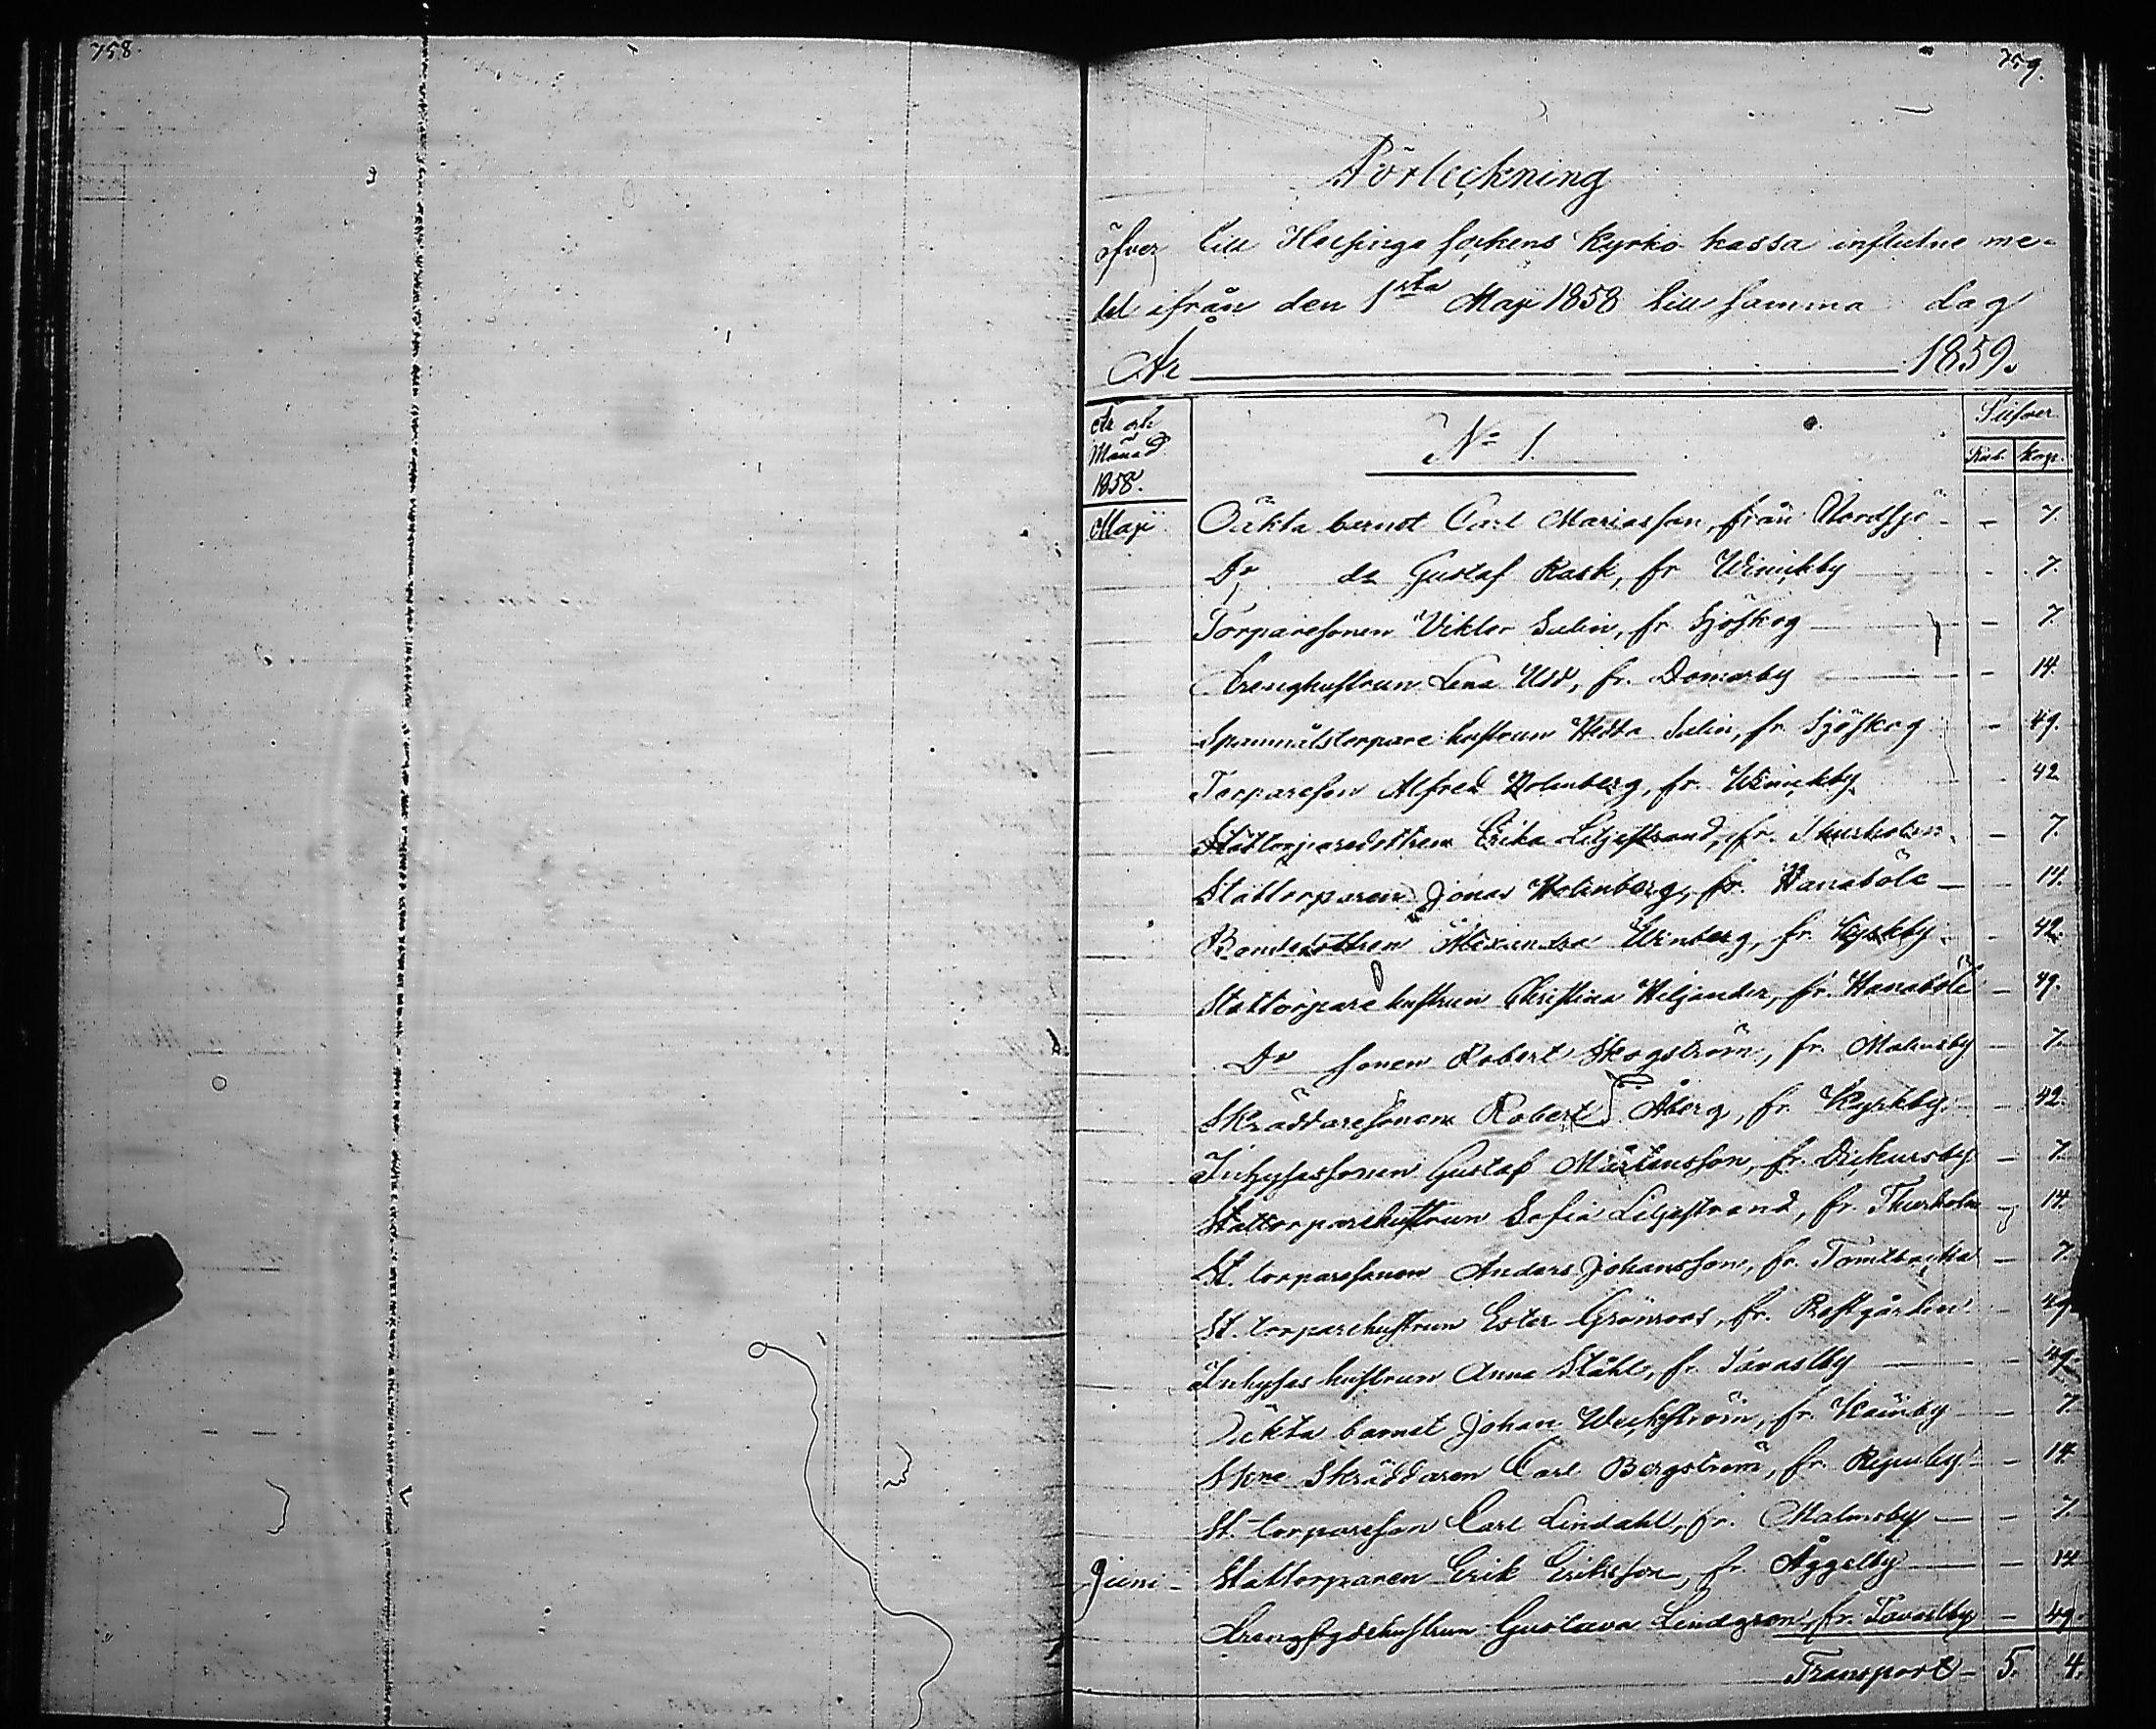 758.
759.
Förteckning
öfver till Helsinge sockens Kyrko kassa influtne me-
del ifrån den 1sta Maji 1858 till samma dag
År 1859.
År och Silfver
Månad No 1. Rub. Kop.
1858.
Maji Oäkta barnet Carl Mariasson, från Nordsjö - - 7.
Do do Gustaf Rask, fr Winickby - 7.
Torparesonen Viktor Salin, fr Sjöskog - 7
Drenghustrun Lena Udd, fr. Domarby - 14.
Spannmålstorpare hustrun Hedda Salin, fr Sjöskog - 49.
Torpareson Alfred Holmberg, fr. Winickby 42
Stattorparedottren Erika Liljestrand, fr. Thurholm - 7.
Stattorparen Jonas Holmberg, fr. Hanaböle - 14.
Bondedottren Alexandra Winberg, fr. Kyrkby - 42.
Stattorpare hustrun Christina Heljander, fr. Hanaböle - 49.
Do sonen Robert Skogström, fr. Malmsby - 7.
Skräddaresonen Robert Åberg, fr. Kyrkby - 42.
Inhysessonen Gustaf Mårtensson, fr. Dickursby - 7.
Stattorparehustrun Sofia Liljestrand, fr. Thurholm - 14.
St. torparesonen Anders Johansson, fr. Tomtbacka - 7.
St. torparehustrun Ester Grönroos, fr. Prestgården - 49
Inhyses hustrun Anna Ståhl, fr. Tavastby - 49.
Oäkta barnet Johan Weckström, fr. - 7
Skräddaren Carl Bergström, fr. - 14
St. torpareson Carl Lindahl, fr. Malmsby - 7.
Juni - Stattorparen Erik Eriksson, fr Åggelby - 14
Gustava Lindgren, fr. Tavastby - 49.
Transport - 5. 4.